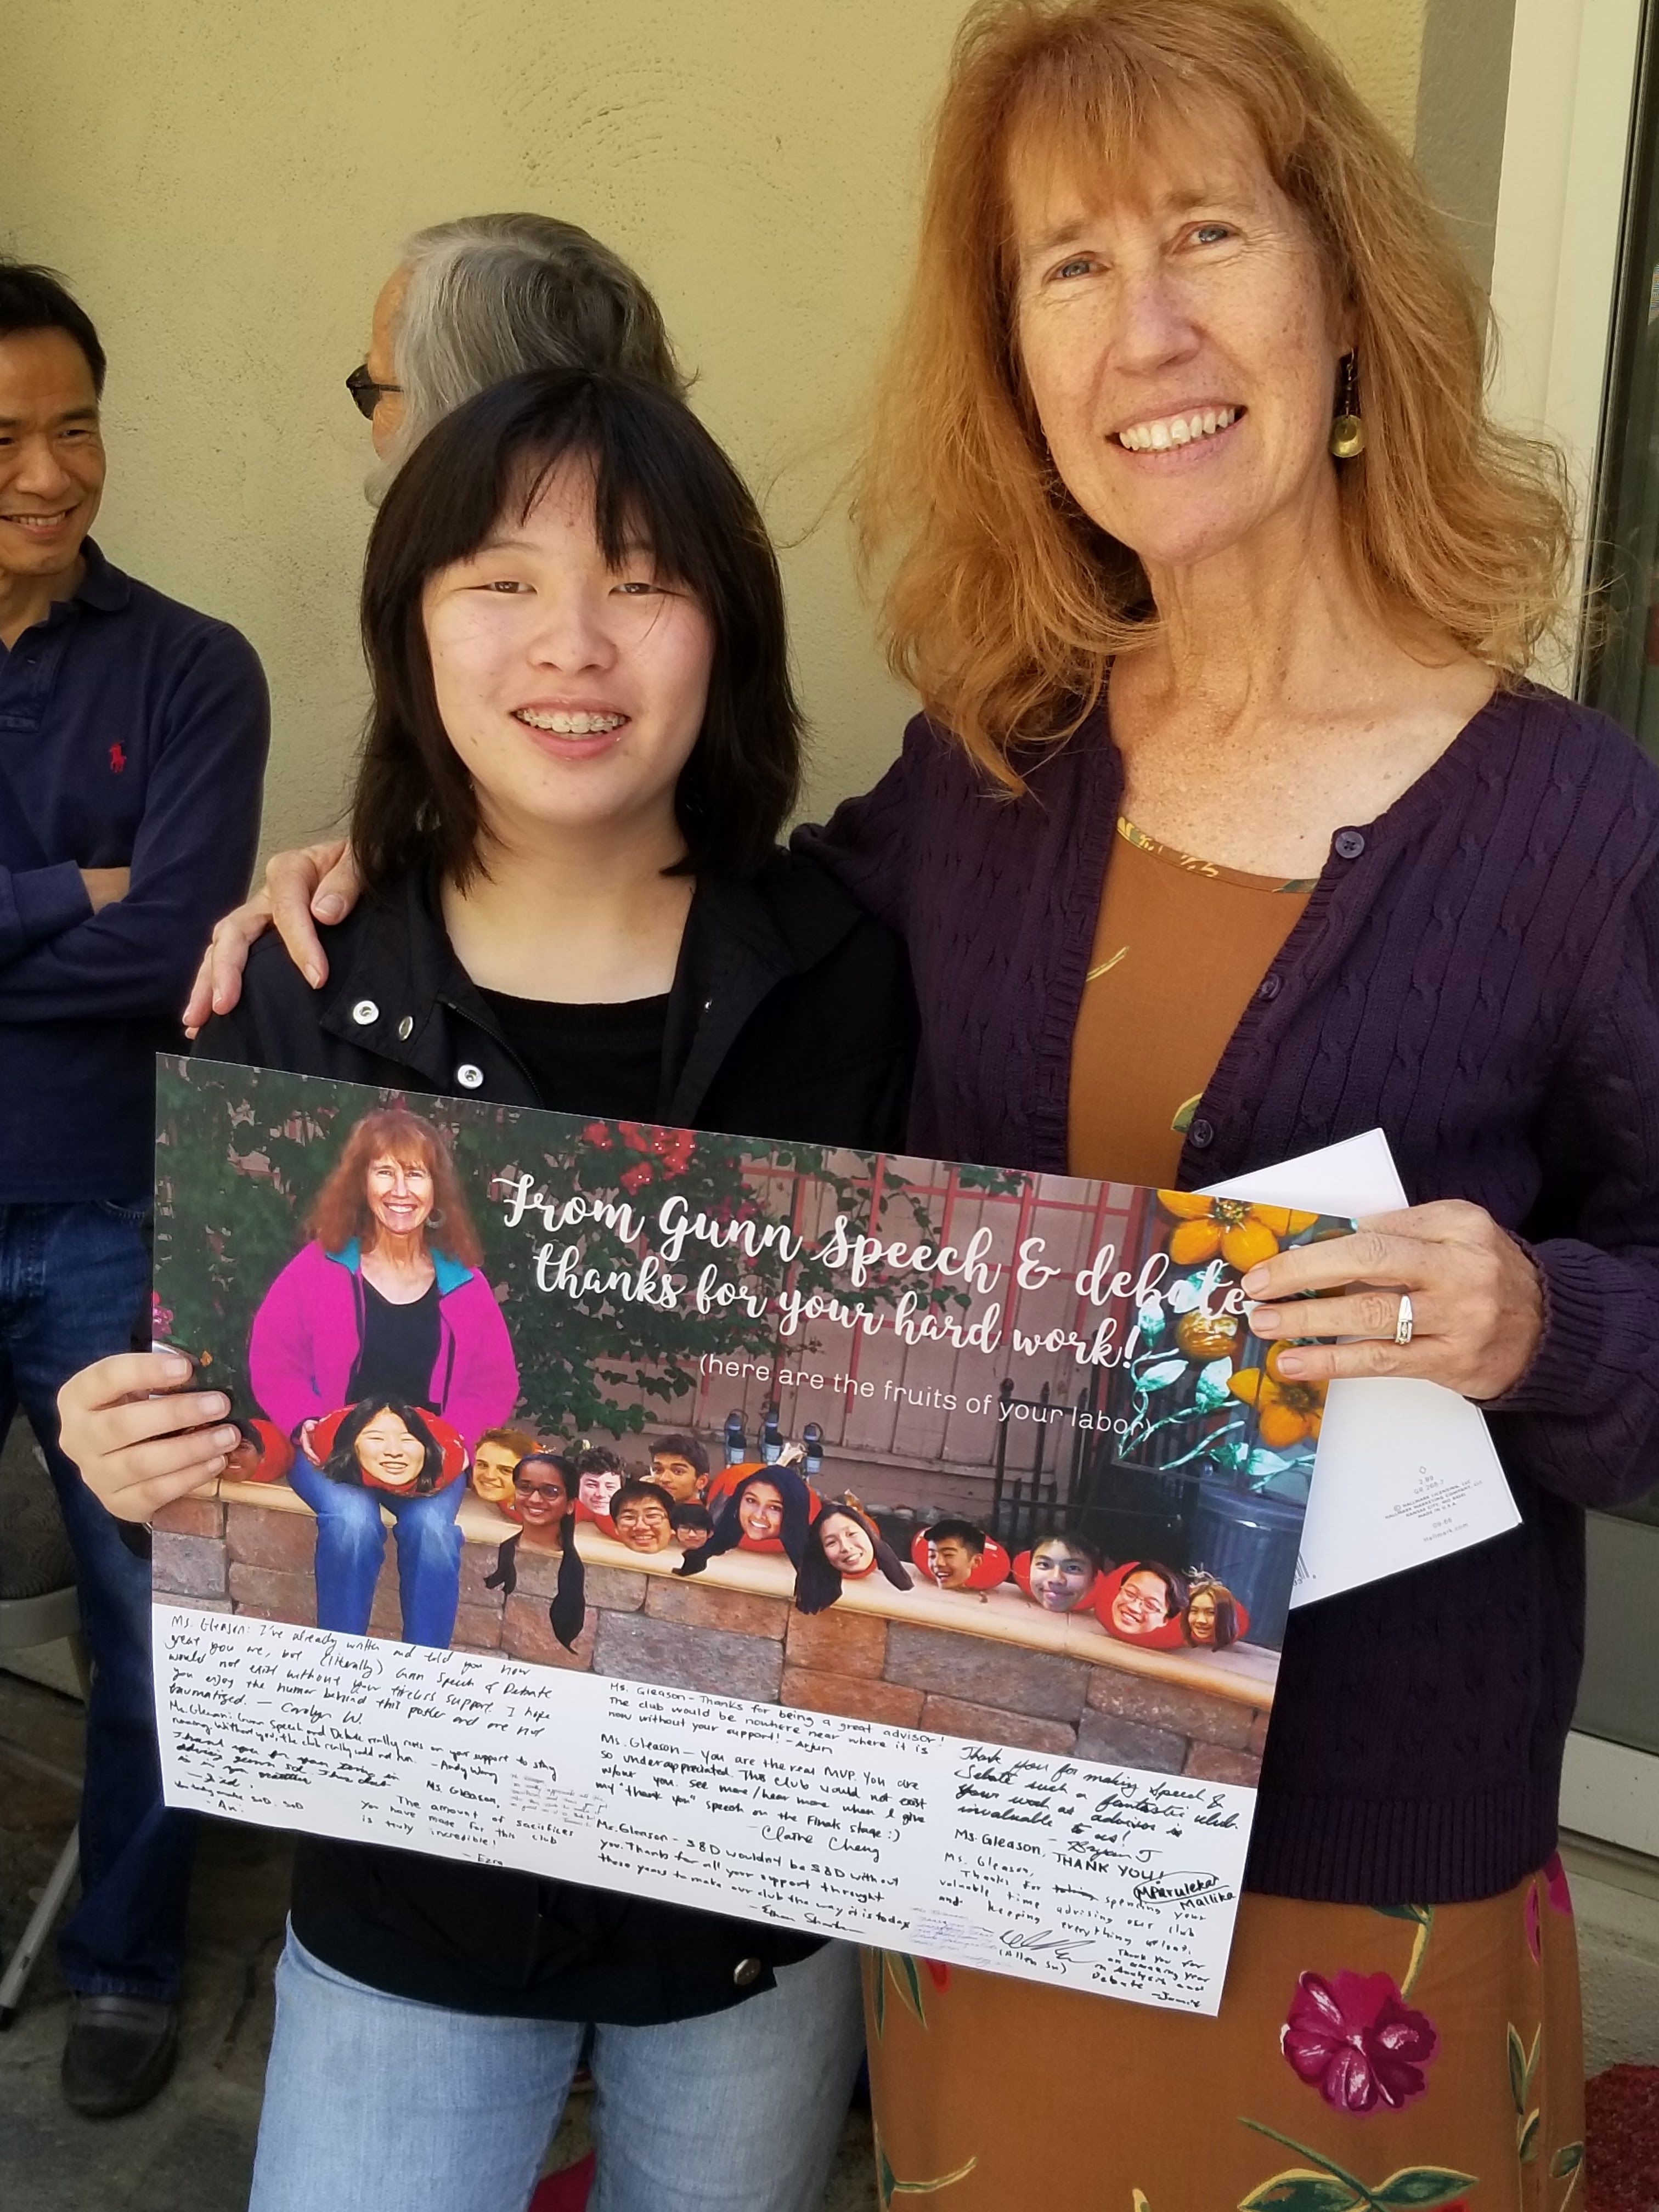 From Gunn Speech & debate
thanks for your hard work!
(here are the fruits of your labor)
Ms. Gleason: I've already written and told you how
great you are, but (literally) Gunn Speech & Debate
would not exist without your tireless support. I hope
you enjoy the humor behind this poster and are not
traumatized. — Carolyn W.
Ms. Gleason: Gunn Speech and Debate really runs on your support to stay
running. Without you, the club really would not run.
— Andy Wang
Thank you for
- An
Ms. Gleason,
The amount of sacrifices
you have made for this club
is truly incredible!
- Ezra
Ms. Gleason - Thanks for being a great advisor!
The club would be nowhere near where it is
now without your support! - Arjun
Ms. Gleason — you are the real MVP. You are
so underappreciated. This club would not exist
w/out you. See more/hear more when I give
my "thank you" speech on the Finals stage :)
- Claire Cheng
Ms. Gleason - S&D wouldn't be S&D without
you. Thanks for all your support throught
those years to make our club the way it is today
- Ethan
Thank you for making Speech &
Debate such a fantastic club.
Your work as advisor is
invaluable to us!
- Bryan J
Ms. Gleason, THANK YOU!
MParulekar
Mallika
Ms. Gleason,
Thanks for spending your
valuable time advising our club
and keeping everything afloat.
(Allen Su)
Thank you for
an amazing year
in Analysis and
Debate - Jamie
2.99
HALLMARK LICENSING, LLC
MADE IN U.S.A.
Hallmark.com